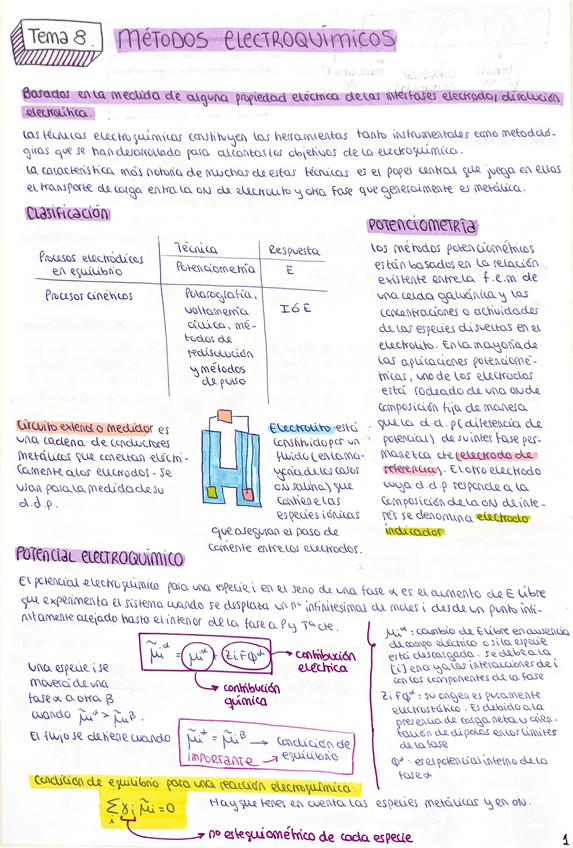 Tema 8.
MÉTODOS ELECTROQUÍMICOS
Basados en la medida de alguna propiedad eléctrica de las interfases electrodo/disolución
electrolítica.
Las técnicas electroquímicas constituyen las herramientas tanto instrumentales como metodoló-
gicas que se han desarrollado para alcanzar los objetivos de la electroquímica.
La característica más notoria de muchas de estas técnicas es el papel central que juega en ellas
el transporte de carga entre la ON de electrolito y otra fase que generalmente es metálica.
Clasificación
Técnica Respuesta
Procesos electródicos
en equilibrio
Potenciometría E
Procesos cinéticos
Polarografía,
voltametría
cíclica, mé-
todos de
redisolución
y métodos
de pulso
I ó E
POTENCIOMETRÍA
Los métodos potenciométricos
están basados en la relación
existente entre la f.e.m de
una celda galvánica y las
concentraciones o actividades
de las especies disueltas en el
electrolito. En la mayoría de
las aplicaciones potenciomé-
tricas, uno de los electrodos
está rodeado de una on de
composición fija de manera
que la d.d.p (diferencia de
potencial) de su interfase per-
manezca cte (electrodo de
referencia). El otro electrodo
cuya d.d.p responde a la
composición de la ON de inte-
rés se denomina electrodo
indicador.
Circuito externo o medidor es
una cadena de conductores
metálicos que conectan eléctri-
camente a los electrodos. Se
usan para la medida de su
d.d.p.
Electrolito está
constituido por un
fluido (en la ma-
yoría de los casos
ON salina) que
contiene las
especies iónicas
que aseguran el paso de
corriente entre los electrodos.
POTENCIAL ELECTROQUÍMICO
El potencial electroquímico para una especie i en el seno de una fase α es el aumento de E libre
que experimenta el sistema cuando se desplaza un nº infinitesimal de moles i desde un punto infi-
nitamente alejado hasta el interior de la fase a P y Tª cte.
μ̃i^α = μi^α + ZiFΦ^α
contribución
eléctrica
contribución
química
Una especie i se
moverá de una
fase α a otra β
cuando μ̃i^α > μ̃i^β.
El flujo se detiene cuando
μ̃i^α = μ̃i^β → condición de
IMPORTANTE → equilibrio
μi^α: cambio de E libre en ausencia
de campo eléctrico o si la especie
está descargada. Se debe a la
[i] en α y a las interacciones de i
con los componentes de la fase
ZiFΦ^α: su origen es puramente
electrostático. Es debido a la
presencia de carga neta u orien-
tación de dipolos en los límites
de la fase
Φ^α: es el potencial interno de la
fase α
Condición de equilibrio para una reacción electroquímica:
Σi γi μ̃i = 0
Hay que tener en cuenta las especies metálicas y en ON.
no estequiométrico de cada especie
1